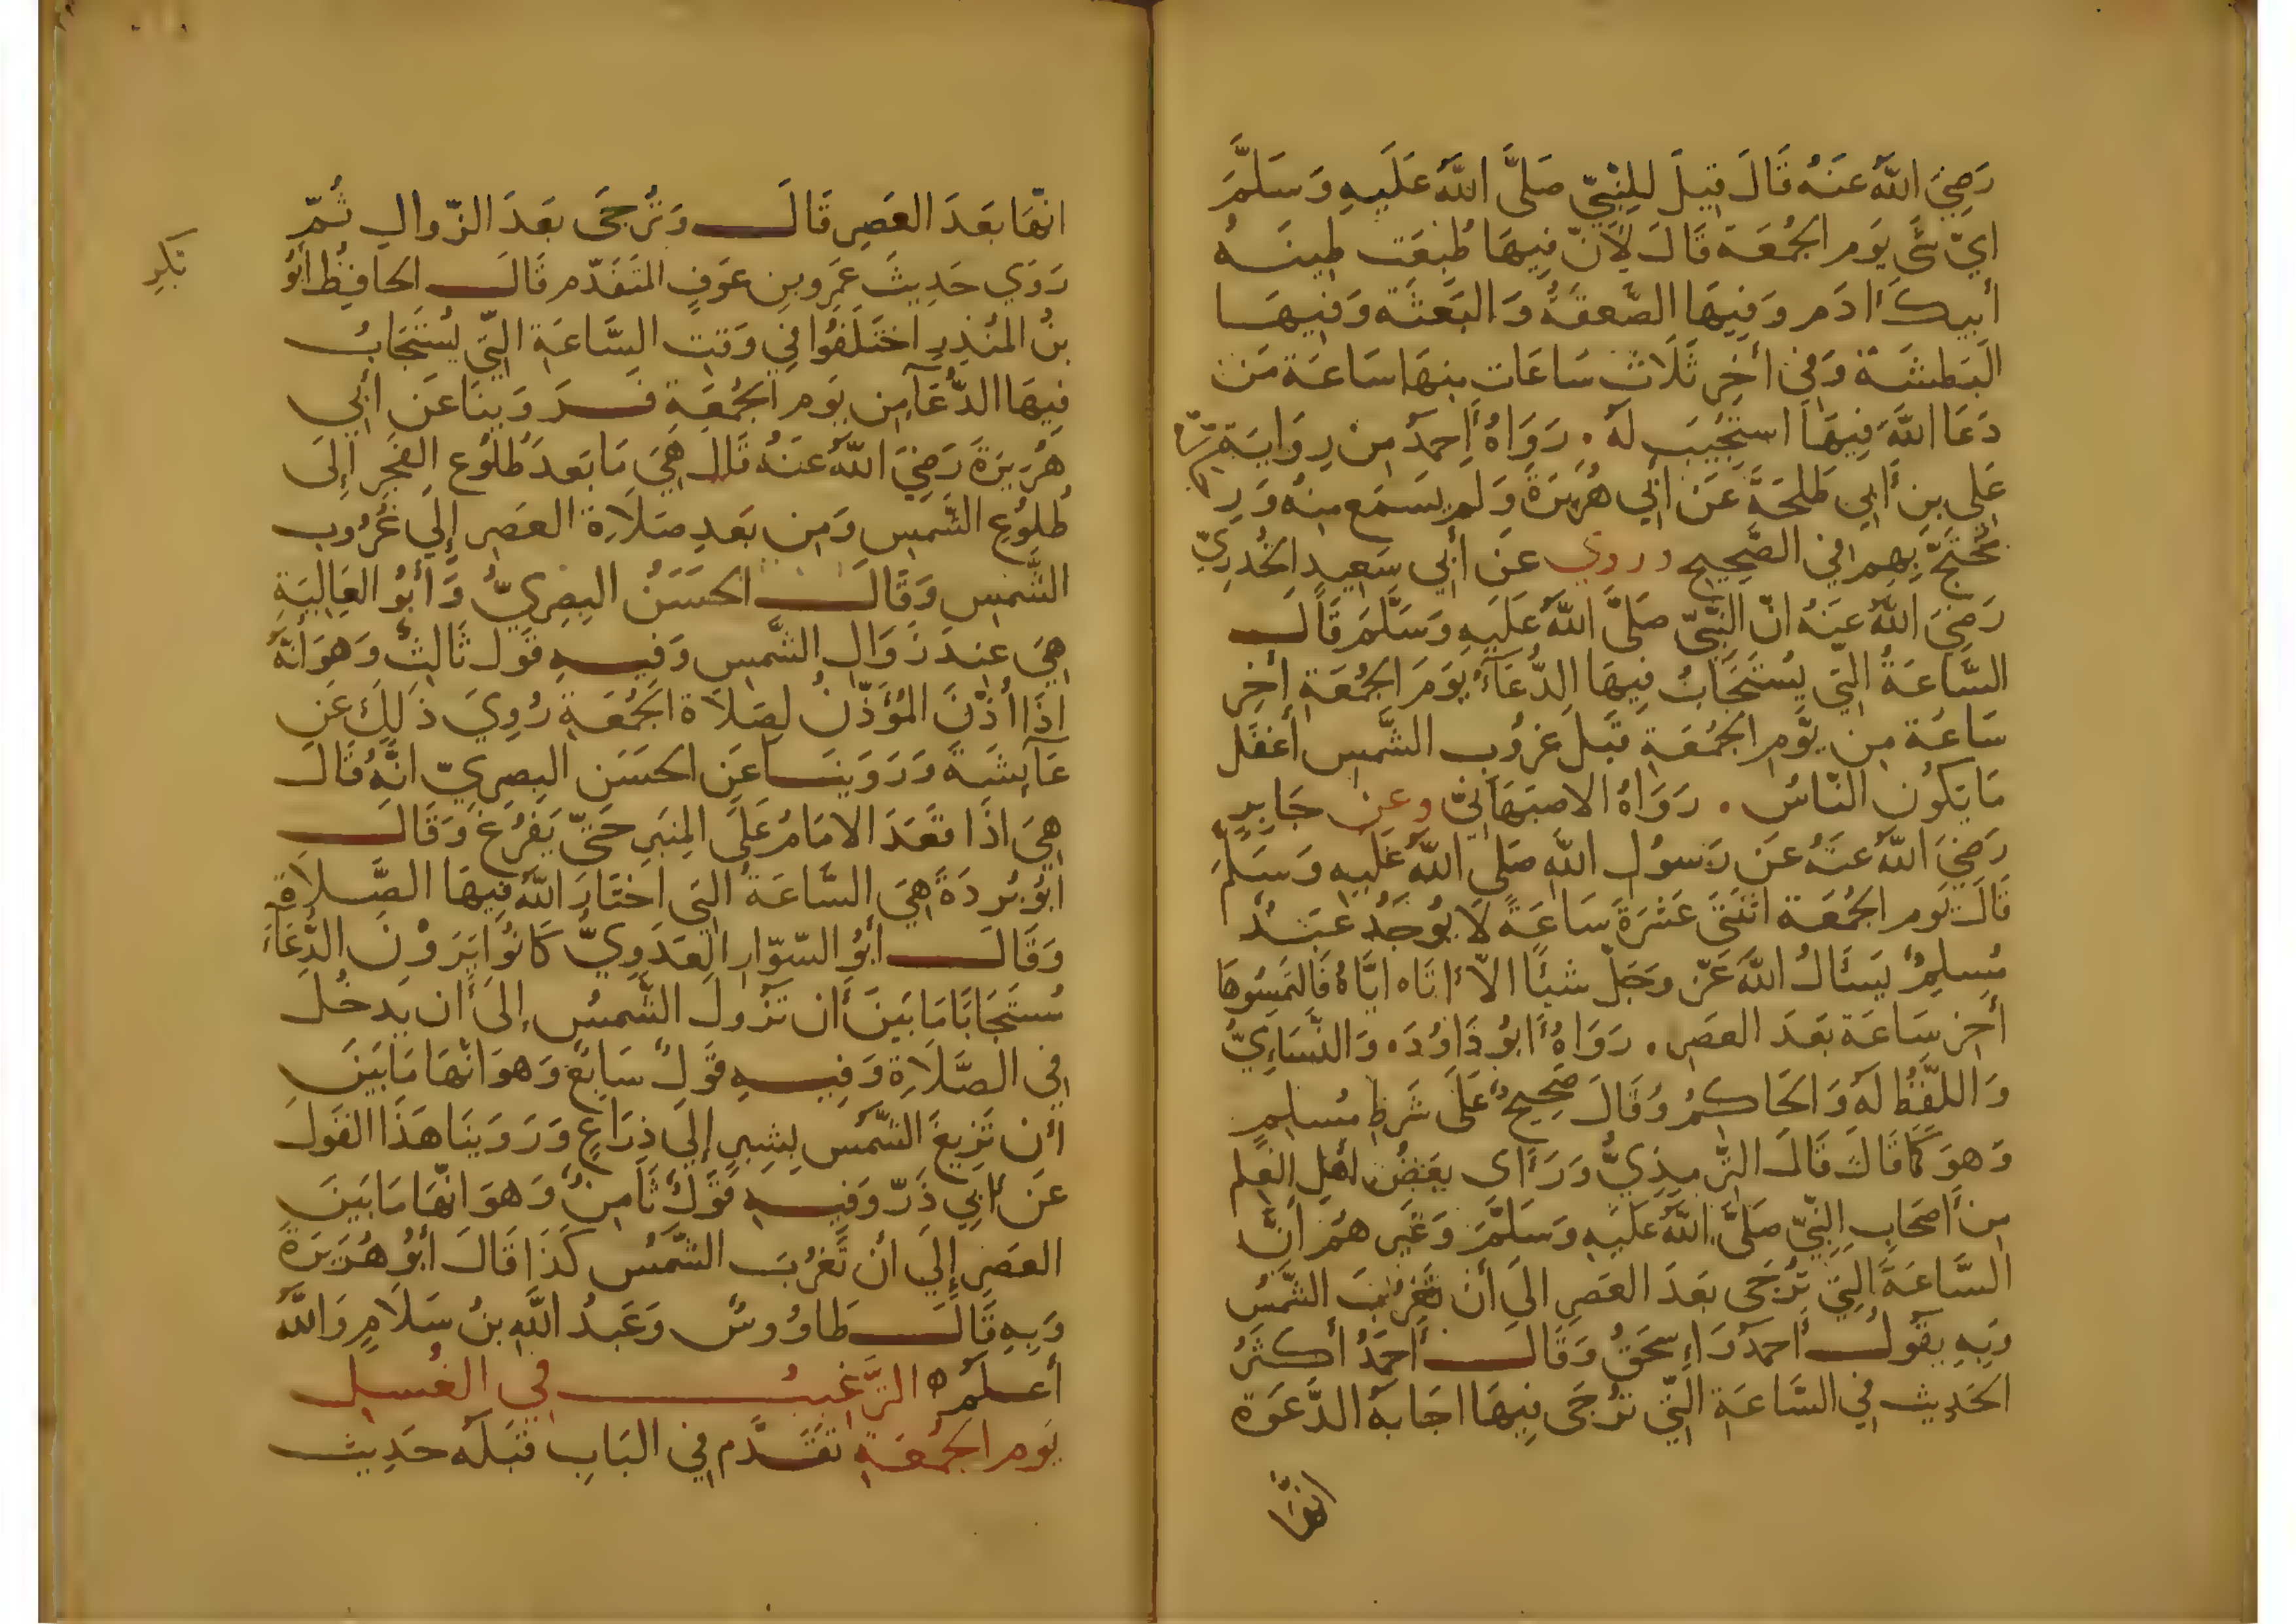 رَضِيَ اللَّهُ عَنْهُ قَالَ قِيلَ لِلنَّبِيِّ صَلَّى اللَّهُ عَلَيْهِ وَسَلَّمَ
ايّ شَئ يَوم الجُمُعَة قَالَ لِأَنّ فِيهَا طُبِعَت طِينَةُ
أَبِيكَ ادَم وَفِيهَا الصَّعقَةُ وَالبَعثَة وَفِيهَا
البَطشَة وَفِي أخِرِ ثَلَاث سَاعَات مِنهَا سَاعَة مَن
دَعَا اللَّهَ فِيهَا استُجِيبَ لَه . رَوَاهُ أَحمدُ مِن رِوَايَةِ
عَلِى بنِ أَبِي طَلحَةَ عَن أَبِي هُرَيرَةَ وَلَم يَسمَع مِنهُ وَرِ
تَجّ بِهِم فِي الصَّحِيحِ وروي عَن أَبِي سَعِيدٍ الخُدرِيّ
رَضِيَ اللَّهُ عَنهُ انّ النَّبِيّ صَلَّى اللَّهُ عَلَيهِ وَسَلَّمَ قَالَ
السَّاعَةُ التِي يُستَجَابُ فِيهَا الدُّعَاءُ يَومَ الجُمُعَةِ أخِر
سَاعَة مِن يَومِ الجُمُعَةِ قَبلَ غرُوب الشَّمسِ أَغفَل
مَا يَكُون النّاسُ . رَوَاهُ الاصبَهَانِيّ وعن جَابِرٍ
رَضِيَ اللَّهُ عَنهُ عَن رَسولِ اللَّهِ صَلى اللَّهُ عَلَيهِ وَسَلَّمَ
قَالَ يَوم الجُمُعَة اثنَتَى عَشرَةَ سَاعَةً لَا يُوجَدُ عَبدٌ
مُسلِمٌ يَسئَالُ اللَّهَ عَزّ وجَلّ شَيئًا الاّ اتَاه ايّاهُ فَالتَمِسُوهَا
أخِر سَاعَة بَعدَ العَصر . رَوَاهُ أَبُو دَاوُدَ . وَالنّسَاءِيُّ
وَاللَّفظُ لَهُ وَالحَاكِمُ وَقَالَ صَحِيحٌ عَلَى شَرطِ مُسلِمٍ
وَهوَ كَمَا قَالَ قَالَ التِّرمِذِيُّ وَرَأَى بَعضُ اهلِ العِلم
مِن أَصحَابِ النَّبِيّ صَلَّى اللَّهُ عَلَيهِ وَسَلَّمَ وَغَيرِ هُم أَنَّ
السَّاعَةَ التِي تُرجَى بَعدَ العَصرِ الَى أَن تَغرُبَ الشَّمسُ
وَبِهِ يَقُولُ أَحمَدُ وَاءِسحَقُ وَقَالَ أَحمَدُ أَكثَرُ
الحَدِيثِ فِي السَّاعَةِ التِّي تُرجَى فِيهَا اجَابَةُ الدَّعوَة
انّهَا
انّهَا بَعدَ العَصرِ قَالَ وَتُرجَى بَعدَ الزّوالِ ثُمّ
رَوَي حَدِيثَ عَمرو بن عَوفٍ المتَقَدّم قَالَ الحافِظُ أَبُو
بنُ المُنذِرِ اختَلَفُوا فِي وَقتِ السَّاعَةِ التِّي يُستَجَابُ
بَكرِ
فِيهَا الدُّعَآ مِن يَوم الجُمُعَةِ فَرَوَينَا عَن أَبِي
هُرَيرَةَ رَضِيَ اللَّهُ عَنهُ قَالَ هِيَ مَا بَعدَ طُلُوع الفَجرِ إِلَى
طُلُوعِ الشَّمسِ وَمِن بَعدِ صَلَاةِ العَصر إِلَى غُرُوبِ
الشَّمسِ وَقَالَ الحَسَنُ البِصرِيُّ وَأَبُو العَالِيَةِ
هِيَ عِندَ زَوَالِ الشَّمسِ وَفِيهِ قَول ثَالِثٌ وَهوَ أنَّهُ
اذَا أذّنَ المُؤَذّنُ لِصَلَاة الجُمُعَةِ رُوِيَ ذَلِكَ عَن
عَآيِشَةَ وَرَوَينَا عَن الحَسَن البِصرِيّ انَّهُ قَالَ
هِيَ اذَا قَعَدَ الامَامُ عَلَى المِنبَرِ حَتّى يَفرُغ وَقَالَ
أَبُو بُردَةَ هِيَ السَّاعَةُ التِي اختَارَ اللَّهُ فِيهَا الصَّلاَةَ
وَقَالَ أَبُو السّوّارِ العَدَوِيُّ كَانُوا يَرَونَ الدُّعَآءَ
مُستَجَابًا مَا بَينَ أَن تَزُولَ الشَّمسُ إِلَى أَن يَدخُل
فِي الصَّلَاةِ وَفِيهِ قَولٌ سَابِعٌ وَهوَ انّهَا مَا بَينَ
أَن تَزِيغَ الشَّمس بِشِبرٍ إِلَى ذِرَاعٍ وَرَوَينَا هَذَا القَولَ
عَن أَبِي ذَرّ وَفِيهِ قَولٌ ثَامِنٌ وَهوَ انّهَا مَا بَينَ
العَصرِ إِلَى أن تَغرُبَ الشَّمسُ كَذَا قَالَ أَبُو هُرَيرَةَ
وَبِهِ قَالَ طَاوُوسٌ وَعَبدُ اللَّهِ بنُ سَلَامٍ وَاللَّهُ
أعلَم ه التَّرغيبُ فِي الغُسلِ
يَوم الجُمُعَةِ تَقَدَّم فِي البَابِ قَبلَه حَدِيث